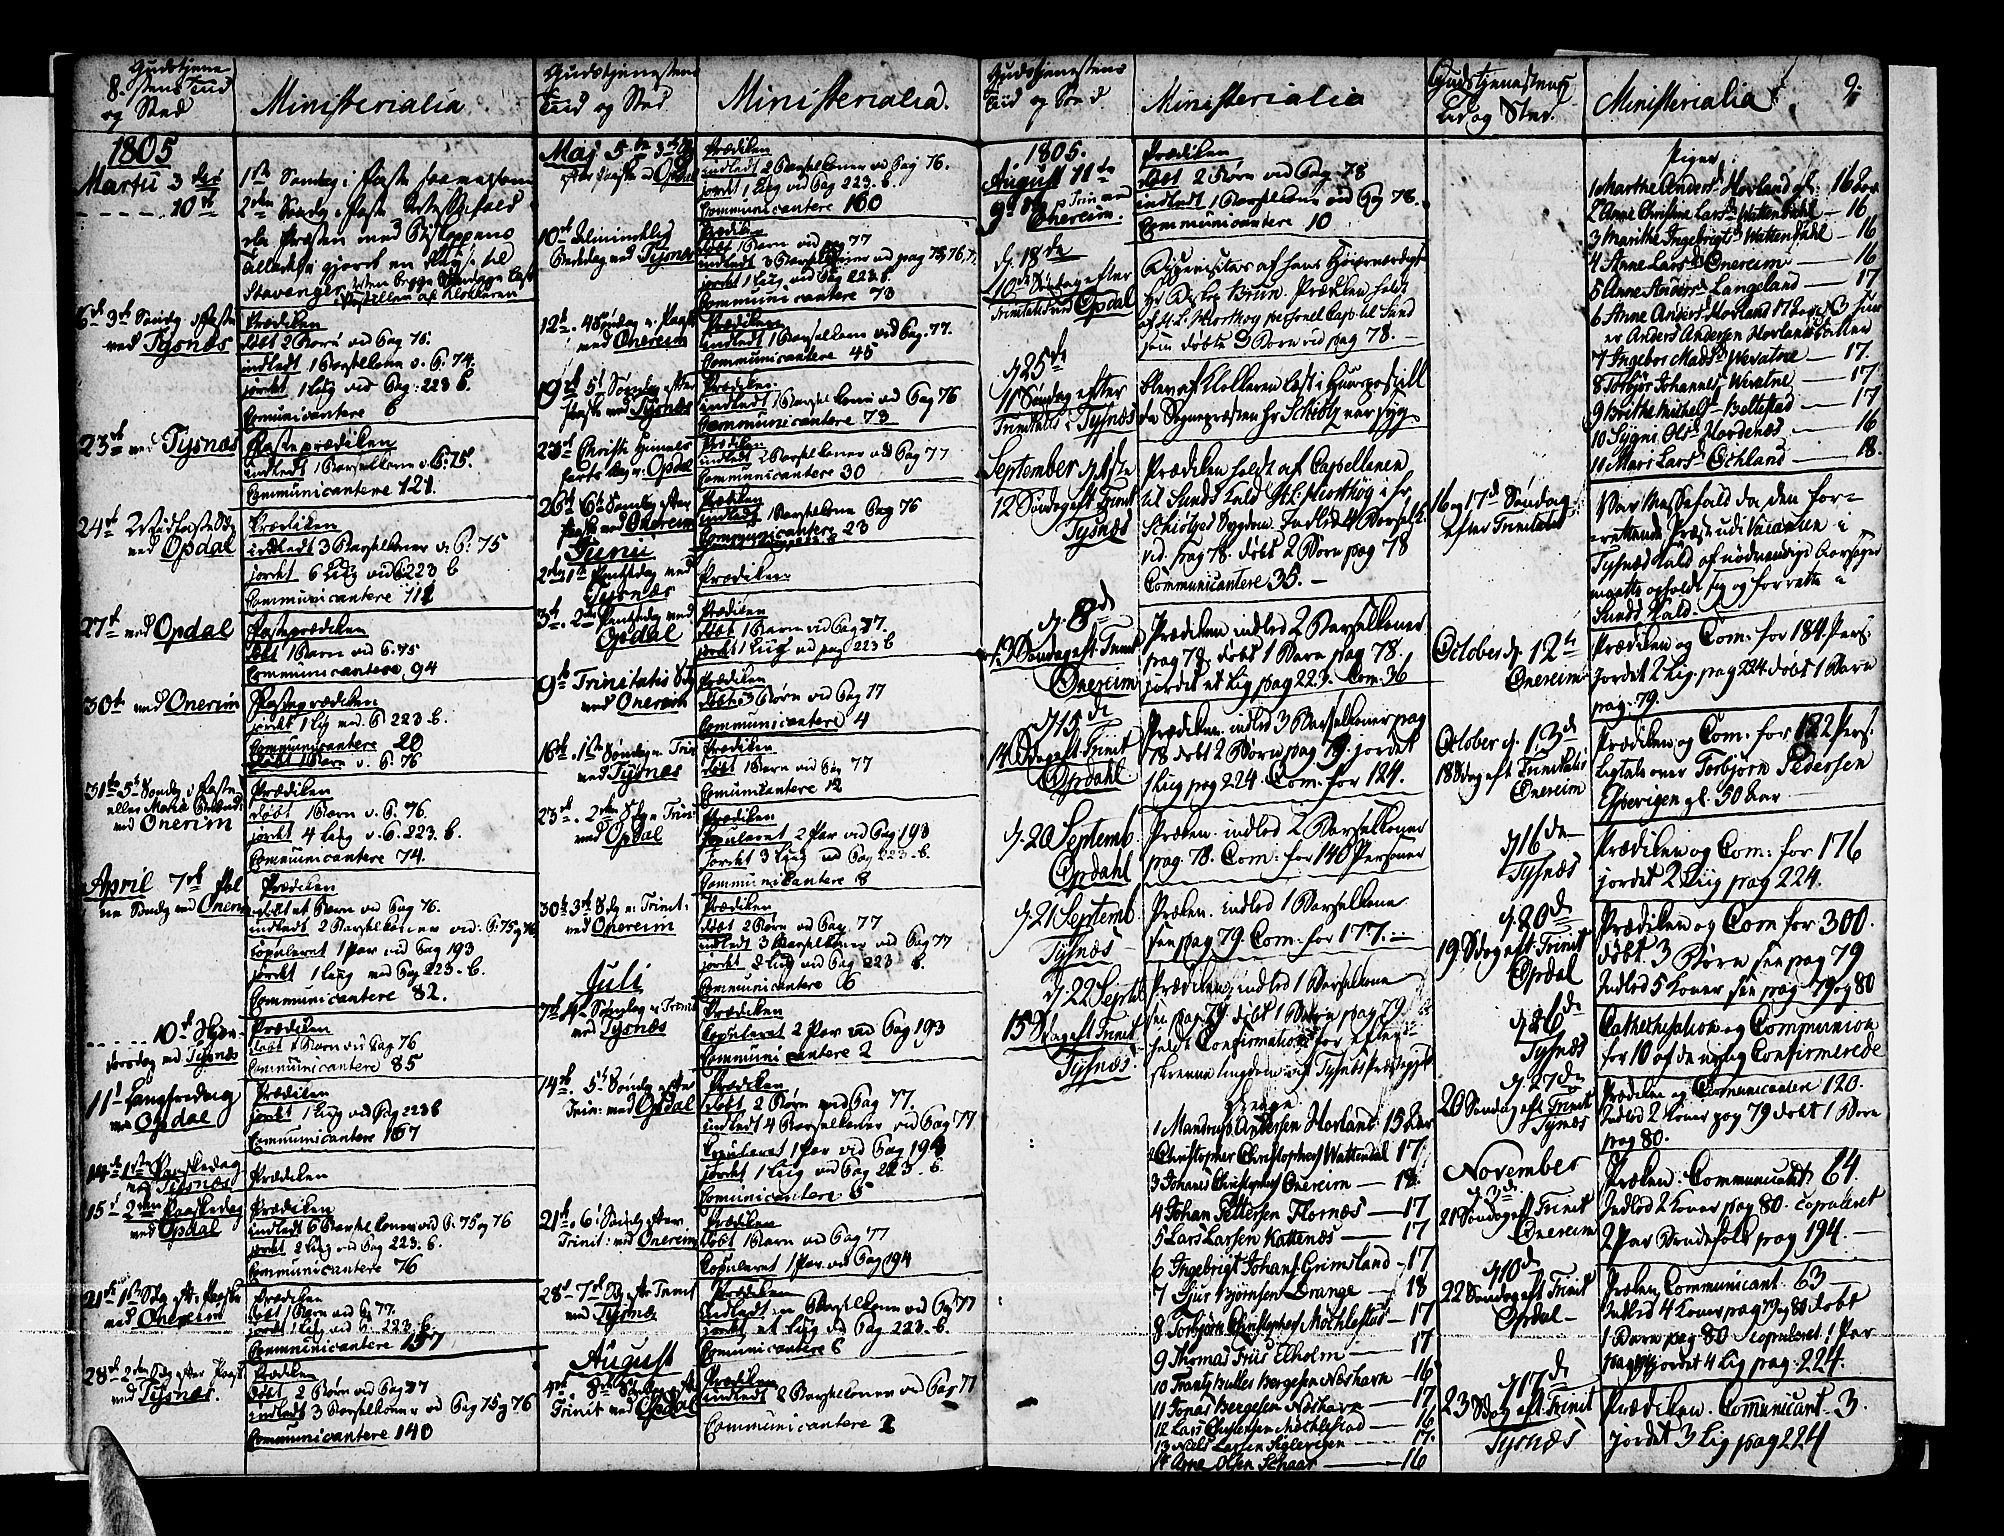 8.
Gudstjene
stens Tiid
og Sted
Ministerialia
1805
Martii 3die
10de
1ste Søndag i Faste
2den Søndag i Faste
Præsten med
gjort en til
Stavanger
af Klokkeren
3de Søndag i Faste
med Tysnæs
Prædiken
døbt 2 Børn ved Pag 75.
indledt 1 Barselkone v. P. 74.
jordet 1 Liig ved Pag: 223 b.
Communicantere 6
23de med Tysnæs
Fasteprædiken
indledt 1 Barselkone v. P. 75.
Communicantere 121.
24de Midfaste
med Opdal
Prædiken
indledt 3 Barselkoner v. P. 75
jordet 6 Liig ved 223 b
Communicantere 112
27de med Opdal
Fasteprædiken
døbt 1 Barn v P. 75
Communicantere 94
30te med Onereim
Fasteprædiken
jordet 1 Liig ved P 223. b.
Communicantere 20
døbt 1 Barn v. P. 76
31te 5te Søndg i Faste
eller Mariæ
med Onereim
Prædiken
døbt 1 Barn v. P. 76.
jordet 4 Liig v. P. 223. b.
Communicantere 74.
April 7de Pal
me Søndg med Onereim
Prædiken
døbt et Barn ved Pag 76.
indledt 2 Barselkoner ved P. 75 og 76
copuleret 1 Par ved Pag 193
jordet 1 Liig ved Pag 223. b.
Communicantere 82.
10de
med Tysnæs
Prædiken
døbt 1 Barn ved Pag 76
Communicantere 85
11te Langfredag
med Opdal
Prædiken
jordet 1 Liig ved Pag 223 b
Communicantere 167
14de 1ste Paaskedag
med Tysnæs
Prædiken
15de 2den Paaskedag
med Opdal
Prædiken
indledt 6 Barselkoner ved P. 75 og 76
jordet 2 Liig ved Pag 223. b.
Communicantere 76
21de 1ste Sdg eft. Paaske
med Onereim
Prædiken
døbt 1 Barn ved Pag 77.
jordet 1 Liig ved P. 223. b.
Communicantere 157
28de 2den Sdg efter Paaske
med Tysnæs.
Prædiken
døbt 2 Børn ved Pag 77
indledt 3 Barselkoner ved Pag 75 og 76
Communicantere 140
Gudstjenestens
Tiid og Sted
Ministerialia.
Maj 5te 3die Sdg
efter Paaske med Opdal
Prædiken
indledt 2 Barselkoner ved Pag 76.
jordet 1 Liig ved Pag 223. b.
Communicantere 160
10de Almindelig
Bededag med Tysnæs
Prædiken
døbt 1 Barn ved pag 77
indledt 3 Barselkoner ved pag 75, 76, 77
jordet 1 Liig ved Pag 223 b
Communicantere 73
12te 4 Søndag e. Paaske
med Onereim
Prædiken
indledt 1 Barselkone ved Pag. 77.
Communicantere 45
19de 5t Søndag efter
Paaske med Tysnæs
Prædiken.
indledt 1 Barselkone ved Pag 76
Communicantere 73
23de Christi Himmel
farts Dag v. Opdal
Prædiken
indledt 2 Barselkoner ved Pag 77
Communicantere 30
26de 6te Søndag efter
Paaske med Onereim
Prædiken
indledt 1 Barselkone Pag 76
Communicantere 23
Junii
2den 1te Pintsedag med
Tysnæs
Prædiken.
3de 2den Pintsedag med
Opdal
Prædiken
døbt 1 Barn ved Pag 77.
jordet 1 Liig ved pag 223 b
9de Trinitatis Sdg
med Onereim
Prædiken
døbt 3 Børn ved Pag 77
Communicantere 4
16de 1ste Søndg e. Trin
med Tysnæs
Prædiken
døbt 1 Barn ved Pag 77
Communicantere 12
23de 2den Sdg e Trin:
med Opdal
Prædiken
Copuleret 2 Par ved Pag: 193
Jordet 3 Liig ved Pag 223. b.
Communicantere 8
30te 3de Sdg e: Trinit:
ved Onereim
Prædiken
døbt 2 Børn ved Pag. 77
indledt 3 Barselkoner ved Pag 77
jordet 2 Liig ved Pag 223 b.
Communicantere 6
Juli
7de 4de Søndag e Trinit
med Tysnæs
Prædiken
Copuleret 2 Par ved Pag 193
Communicantere 2
14de 5t Søndg efter
Trin: med Opdal
Prædiken
døbt 2 Børn ved Pag 77.
indledt 4 Barselkoner ved Pag 77
Copuleret 1 Par ved Pag 194
Jordet 1 Liig ved Pag 223. b.
Communicantere 5
21de 6t Søndg efter
Trinit: med Onereim
Prædiken
døbt 1 Barn ved Pag 77
Copuleret 1 Par ved Pag 194
28de 7de Sdg eftr Trinit
med Tysnæs
Prædiken
indledt en Barselkone ved Pag 77
jordet et Liig ved Pag 223. b.
Communicantere 6
August
4de 8de Søndag efter
Trinit med Opdal
Prædiken
indledt 2 Barselkoner ved Pag 77
Communicantere 2
Gudstjenestens
Tiid og Sted
Ministerialia
1805.
August 11te
9de Sdg p Trin med
Onereim.
Prædiken
døbt 2 Børn ved Pag 78
indledt 1 Barselkone ved Pag 78.
Communicantere 10
d. 18de
10de Søndag efter
Trinitatis ved Opdal
af hans Høiærværdighed
Hr Biskop Brun. Prædiken holdt
af Hr. L. Hiorthøg personel Cap: til Sund
som døbte 3 Børn ved pag 78.
d 25de
11 Søndag efter
Trinitatis i Tysnæs
blev af Klokkeren læst i Huuspostill
da Sognepræsten Hr Schiøtz var syg
September d. 1ste
12 Søndag eft Trinit
Tysnæs
Prædiken holdt af Capellanen
til Sunds Kald Hr L: Hiorthøg i Hr
Schiøtzes Sygdom. Indled 4 Barselk.
ved pag 78. døbt 2 Børn pag 78
Communicantere 35.
d. 8de
13 Søndag eft Trinit
Onereim
Prædiken indled 2 Barselkoner
pag 79. døbt 1 Barn pag 78.
jordet et Lig pag 223. Com: 36
d 15de
14 Sdag eft Trinit
Opdahl
Prædiken. indled 3 Barselkoner pag
78 døbt 2 Børn pag 79. jordet
1 Liig pag 224. Com: for 124.
d. 20 Septemb
Opdahl
Præken. indled 2 Barselkoner
pag. 78. Com: for 140 Personer
d. 21 Septemb
Tysnæs
Præken. indled 1 Barselkone
see pag 79. Com: for 177.
d. 22 Septb
15 Sdag eft Trinit
Tysnæs
Prædiken, indled 1 Barselkone
see pag 79. døbt 1 Barn pag 79
holdt Confirmation for efter
skrevne ungdom af Tysnæs Præstegield
Drenge
1 Mandrup Andersen Horland 15 Aar
2 Christopher Christophers Wattendal 17
3 Johans Christophers Onereim — 18
4 Johan Pettersen Flornæs — 17
5 Lars Larsen Kattenæs — 17
6 Ingebrigt Johans Grimsland — 17
7 Sjur Bjørnsen Drange — 18
8 Torbjørn Christophers Møchlestad — 17
9 Thomas Friis Elholm — 17
10 Frantz Butler Bergesen Nøshavn — 16
11 Jonas Bergesen Nøshavn — 17
12 Lars Christensen Møchlestad — 16
13 Niels Larsen Siglevigen — 17.
14 Arne Olsen Schaar — 16
Gudstjenestens
Tid og Sted.
Ministerialia
9.
Piger
1 Marthe Andersd Horland gl: 16 Aar
2 Anne Christine Larsd Wattendahl — 16
3 Marithe Ingebrigtsd Wattendahl — 16
4 Anne Larsd Onereim — 16
5 Anne Andersd Langeland — 17
6 Anne Andersd Horland 17 Aar 3 hun
er Anders Andersen Horlands Datter
7 Ingebor Madsd Wevatne — 17.
8 Torbjør Johannesd Wevatne — 17
9 Brithe Michelsd Beltestad — 17
10 Sygni Olsd Hordenæs — 16
11 Mari Larsd Øchland — 18.
16 og 17de Søndag
efter Trinitatis
Var Messefald da den for-
rettende Præst udi Vacancen i
Tysnæs Kald af nødvendige Aarsager
maatte opholde sig og forrette i
Sunds Kald
October d. 12te
Onereim
Prædiken og Com: for 184 Pers:
Jordet 2 Lig. pag 224 døbt 1 Barn
pag. 79.
October d. 13de
18 Sdag eft Trinitatis
Onereim
Prædiken og Com: for 122 Pers.
Ligtale over Torbjørn Pedersen
Espevigen gl. 50 Aar
d 16de
Tysnæs
Prædiken og Com: for 176
jordet 2 Liig pag 224.
d. 20de
19 Sdag eft Trinit
Opdal
Prædiken og Com for 300.
døbt 3 Børn see pag 79
Indled 5 Koner see pag 79 og 80
d. 26de
Tysnæs
Cathechisation og Communion
for 10 af de nylig Confirmerede
d. 27de
20 Søndag eft Trinit
Tysnæs
Prædiken og Communicantere 120.
Indled 2 Koner pag 79 døbt 1 Barn
pag 80.
November
d 3de
21 Søndag eft Trinit
Onereim
Præken. Communicant 64.
Indled 2 Koner pag 80. copuleret
2 Par Brudefolk pag 194. —
d 10de
22 Søndag eft Trinit
Opdal —
Præken. Communicant. 63 —
Indled 4 Koner pag 79 og 80 døbt
1 Barn pag 80 copuleret 1 Par
jordet 4 Lig pag: 224.
d 17de
23 Sdag eft. Trinit
Tysnæs
Prædiken. Communicant. 3.
jordet 3 Lig pag 224